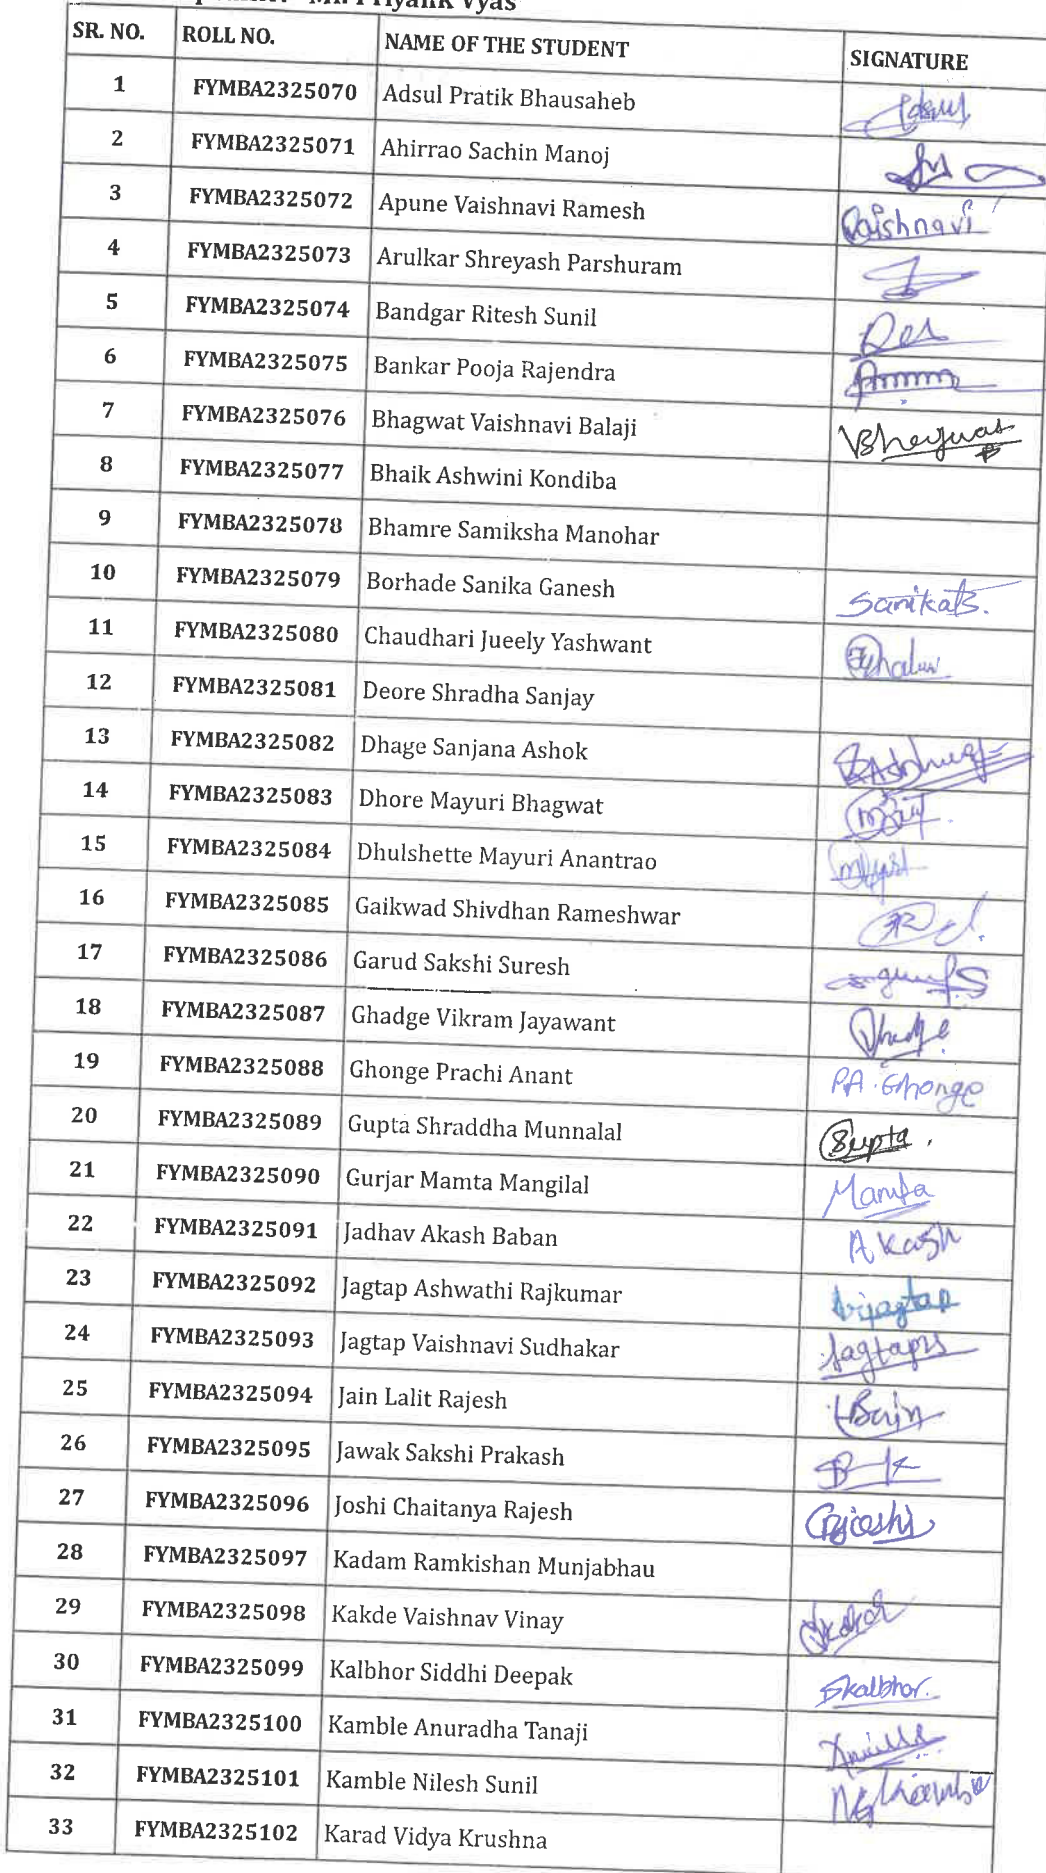 Mr. Priyank Vyas
SR. NO. ROLL NO. NAME OF THE STUDENT SIGNATURE
1 FYMBA2325070 Adsul Pratik Bhausaheb
2 FYMBA2325071 Ahirrao Sachin Manoj
3 FYMBA2325072 Apune Vaishnavi Ramesh Vaishnavi
4 FYMBA2325073 Arulkar Shreyash Parshuram
5 FYMBA2325074 Bandgar Ritesh Sunil
6 FYMBA2325075 Bankar Pooja Rajendra
7 FYMBA2325076 Bhagwat Vaishnavi Balaji
8 FYMBA2325077 Bhaik Ashwini Kondiba
9 FYMBA2325078 Bhamre Samiksha Manohar
10 FYMBA2325079 Borhade Sanika Ganesh SanikaB.
11 FYMBA2325080 Chaudhari Jueely Yashwant
12 FYMBA2325081 Deore Shradha Sanjay
13 FYMBA2325082 Dhage Sanjana Ashok
14 FYMBA2325083 Dhore Mayuri Bhagwat
15 FYMBA2325084 Dhulshette Mayuri Anantrao
16 FYMBA2325085 Gaikwad Shivdhan Rameshwar
17 FYMBA2325086 Garud Sakshi Suresh
18 FYMBA2325087 Ghadge Vikram Jayawant
19 FYMBA2325088 Ghonge Prachi Anant P.A. Ghonge
20 FYMBA2325089 Gupta Shraddha Munnalal Gupta.
21 FYMBA2325090 Gurjar Mamta Mangilal Mamta
22 FYMBA2325091 Jadhav Akash Baban Akash
23 FYMBA2325092 Jagtap Ashwathi Rajkumar
24 FYMBA2325093 Jagtap Vaishnavi Sudhakar Jagtapvs
25 FYMBA2325094 Jain Lalit Rajesh
26 FYMBA2325095 Jawak Sakshi Prakash
27 FYMBA2325096 Joshi Chaitanya Rajesh
28 FYMBA2325097 Kadam Ramkishan Munjabhau
29 FYMBA2325098 Kakde Vaishnav Vinay
30 FYMBA2325099 Kalbhor Siddhi Deepak Skalbhor.
31 FYMBA2325100 Kamble Anuradha Tanaji
32 FYMBA2325101 Kamble Nilesh Sunil
33 FYMBA2325102 Karad Vidya Krushna